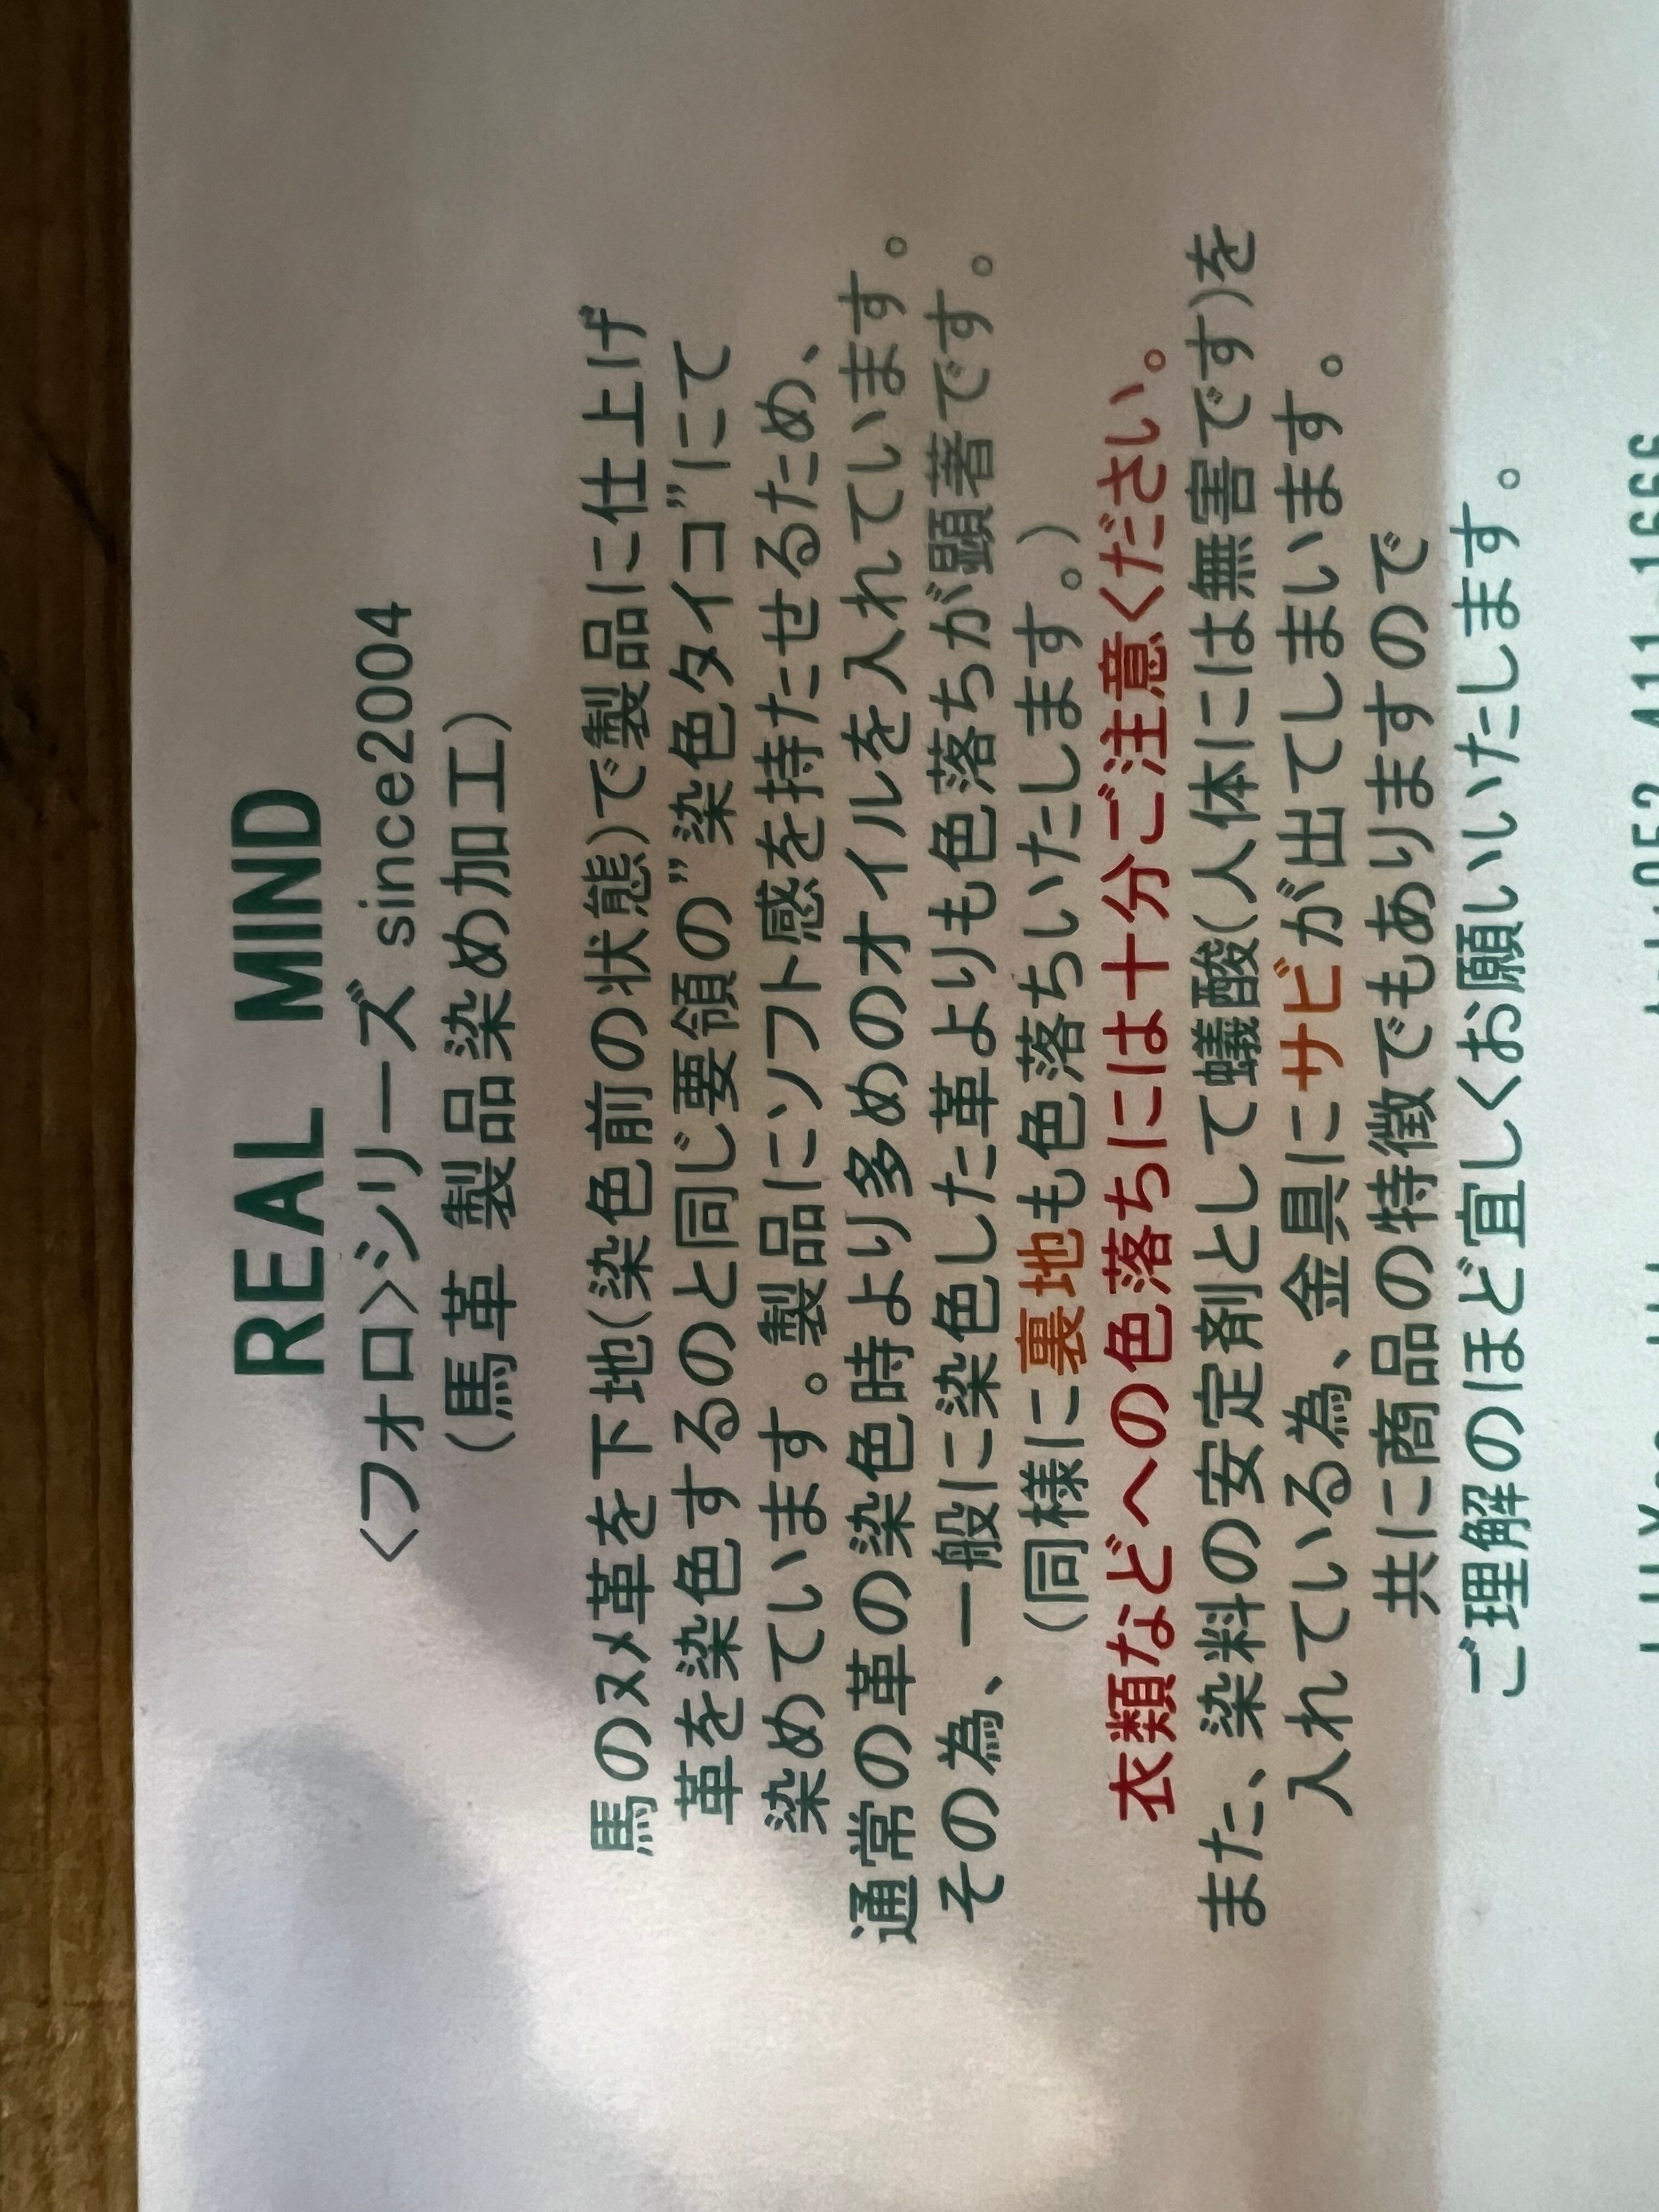 REAL MIND
<フォロ>シリーズ since2004
(馬革 製品染め加工)
馬のヌメ革を下地(染色前の状態)で製品に仕上げ
革を染色するのと同じ要領の”染色タイコ”にて
染めています。製品にソフト感を持たせるため、
通常の革の染色時より多めのオイルを入れています。
その為、一般に染色した革よりも色落ちが顕著です。
(同様に裏地も色落ちいたします。)
衣類などへの色落ちには十分ご注意ください。
また、染料の安定剤として蟻酸(人体には無害です)を
入れている為、金具にサビが出てしまいます。
共に商品の特徴でもありますので
ご理解のほど宜しくお願いいたします。